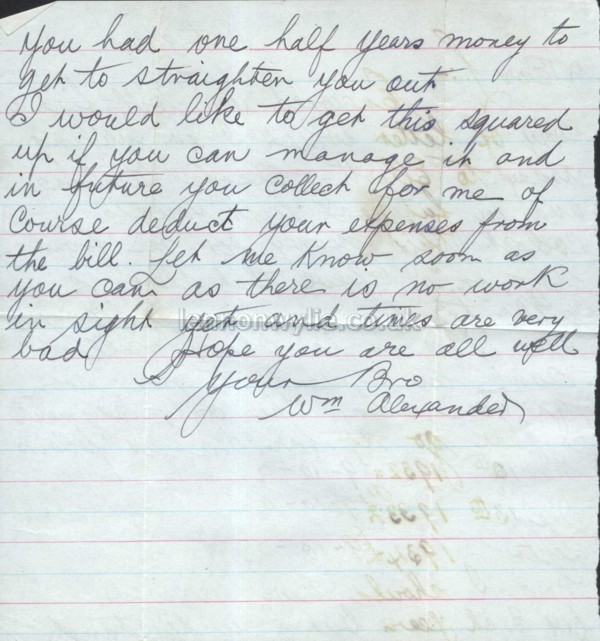 You had one half years money to
get to straighten you out
I would like to get this squared
up if you can manage it and
in future you collect for me of
course deduct your expenses from
the bill. Let me know soon as
you can as there is no work
in sight yet and times are very
bad Hope you are all well
Your Bro
Wm Alexander